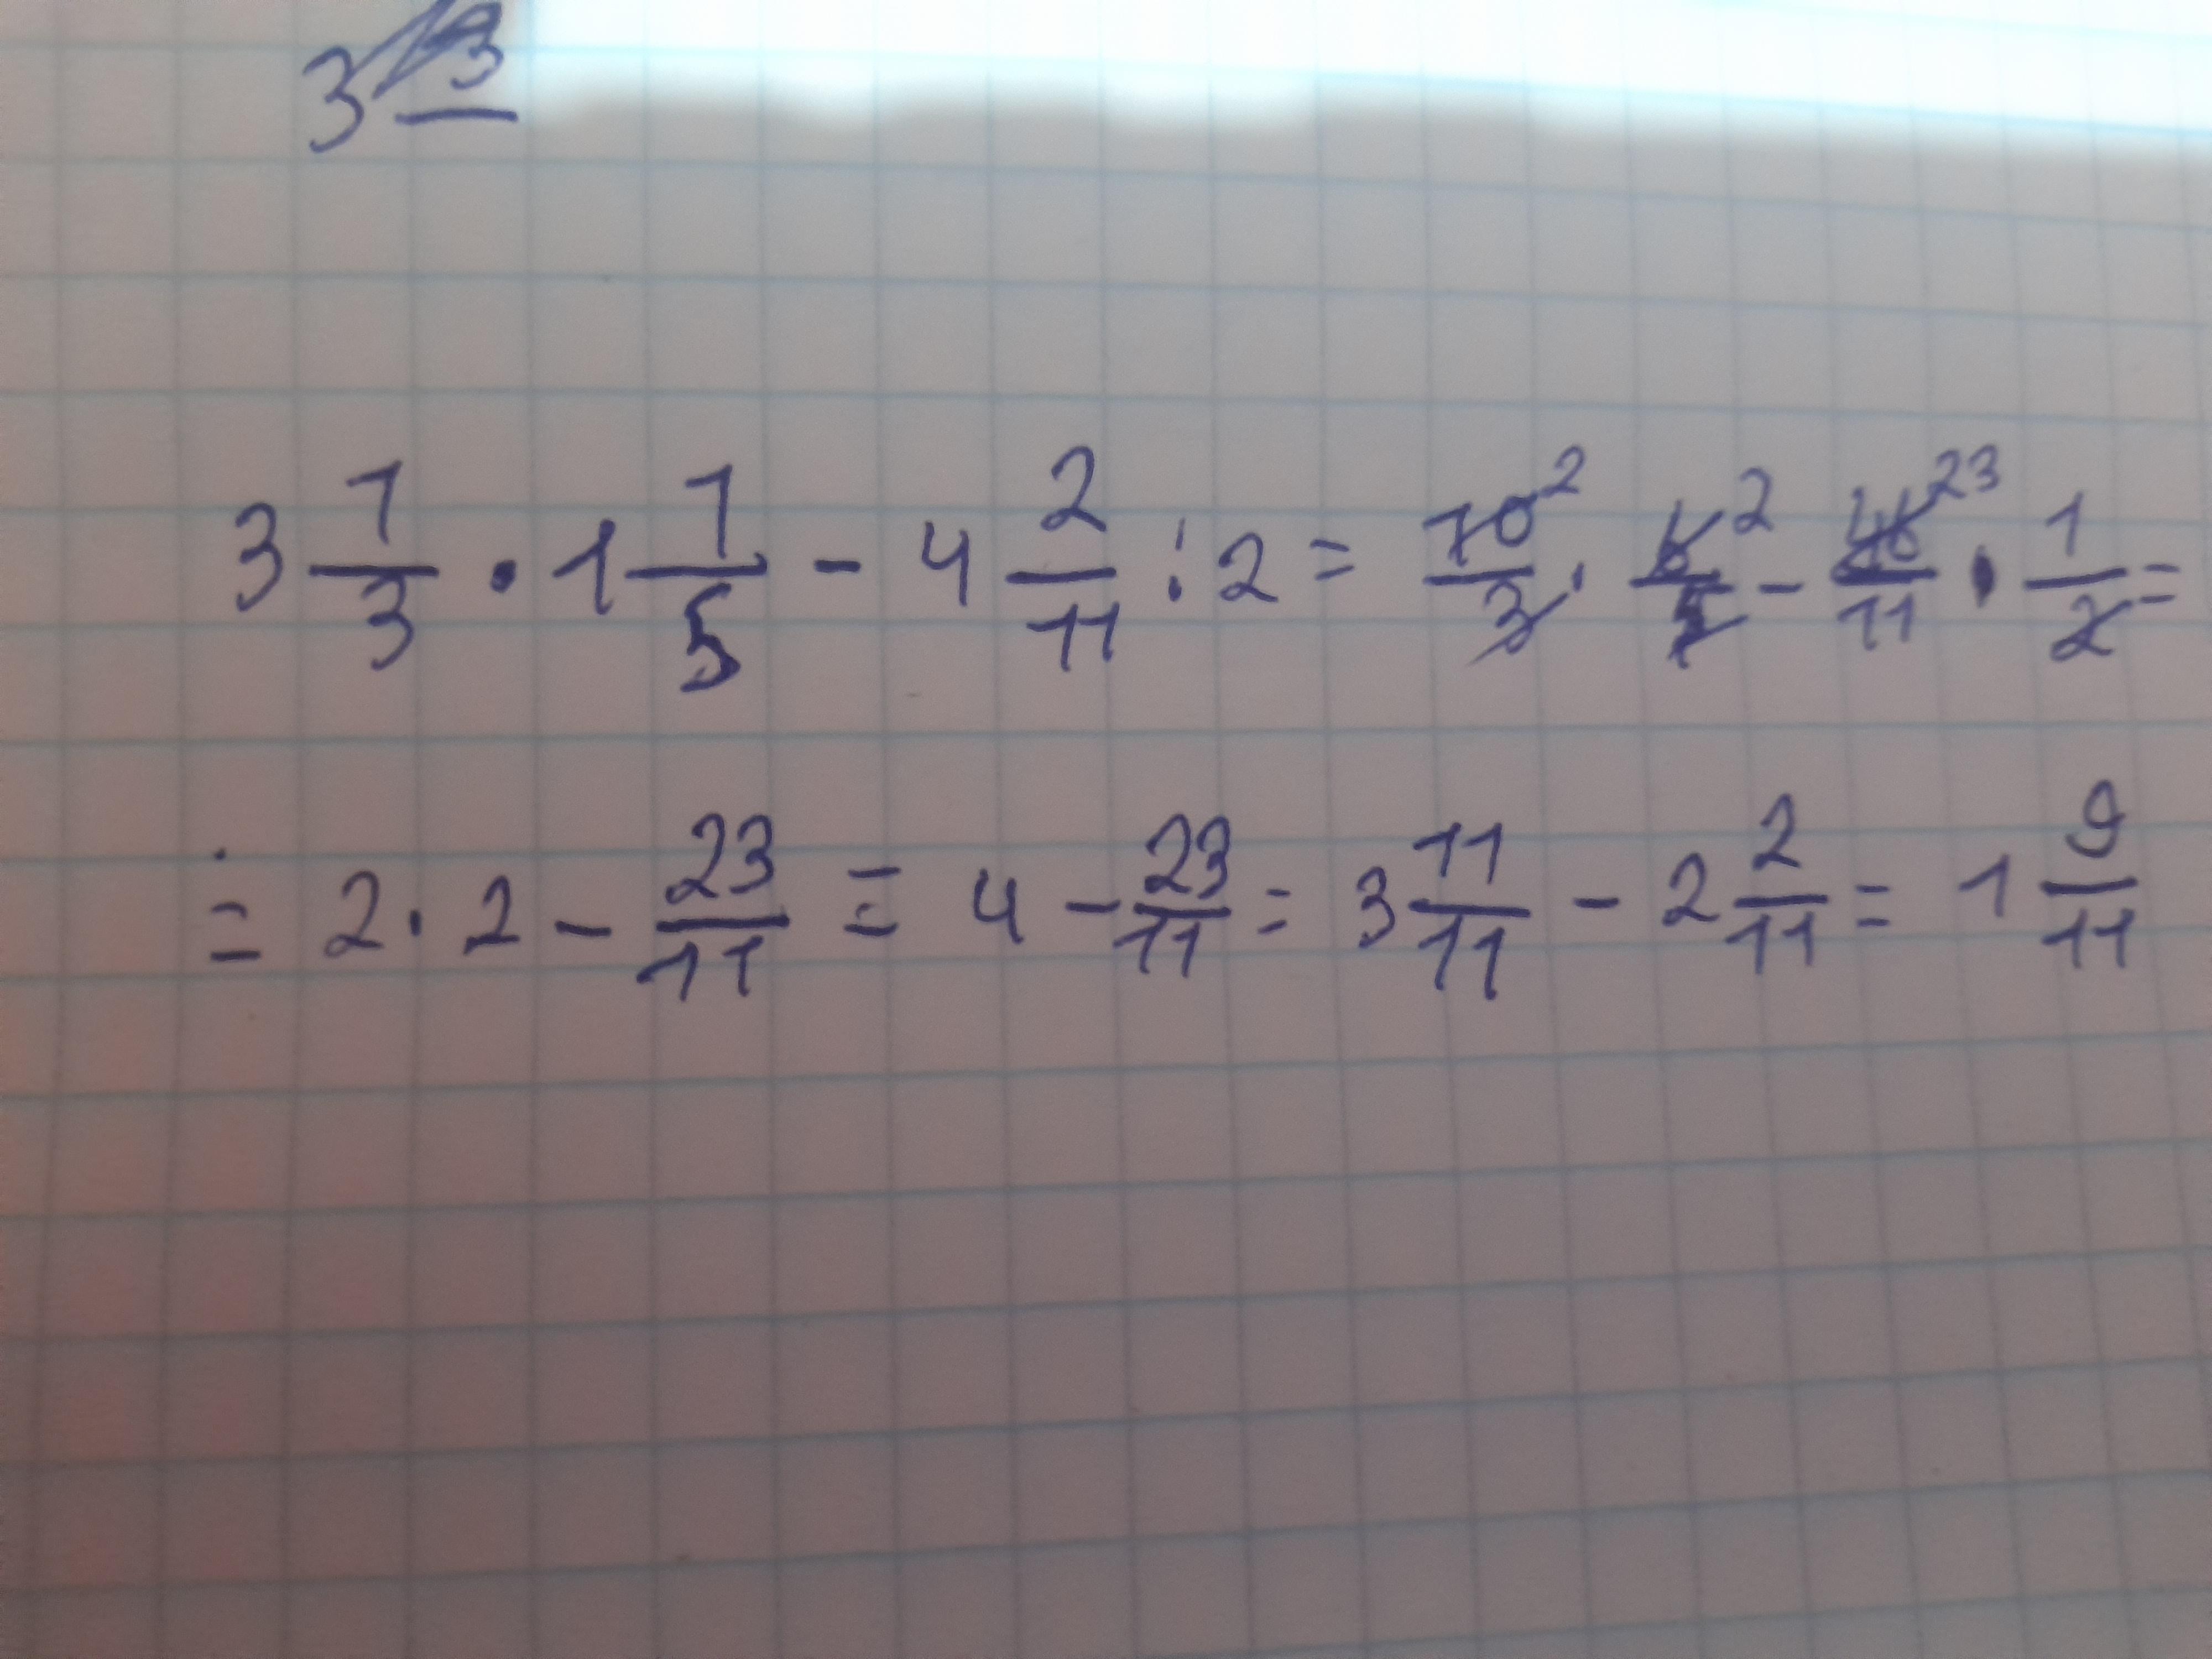 3 3/
3 1/3 · 1 1/5 - 4 2/11 : 2 = 10/3 ² · 6/5 ² - 46/11 ²³ · 1/2 =
= 2 · 2 - 23/11 = 4 - 23/11 = 3 11/11 - 2 2/11 = 1 9/11